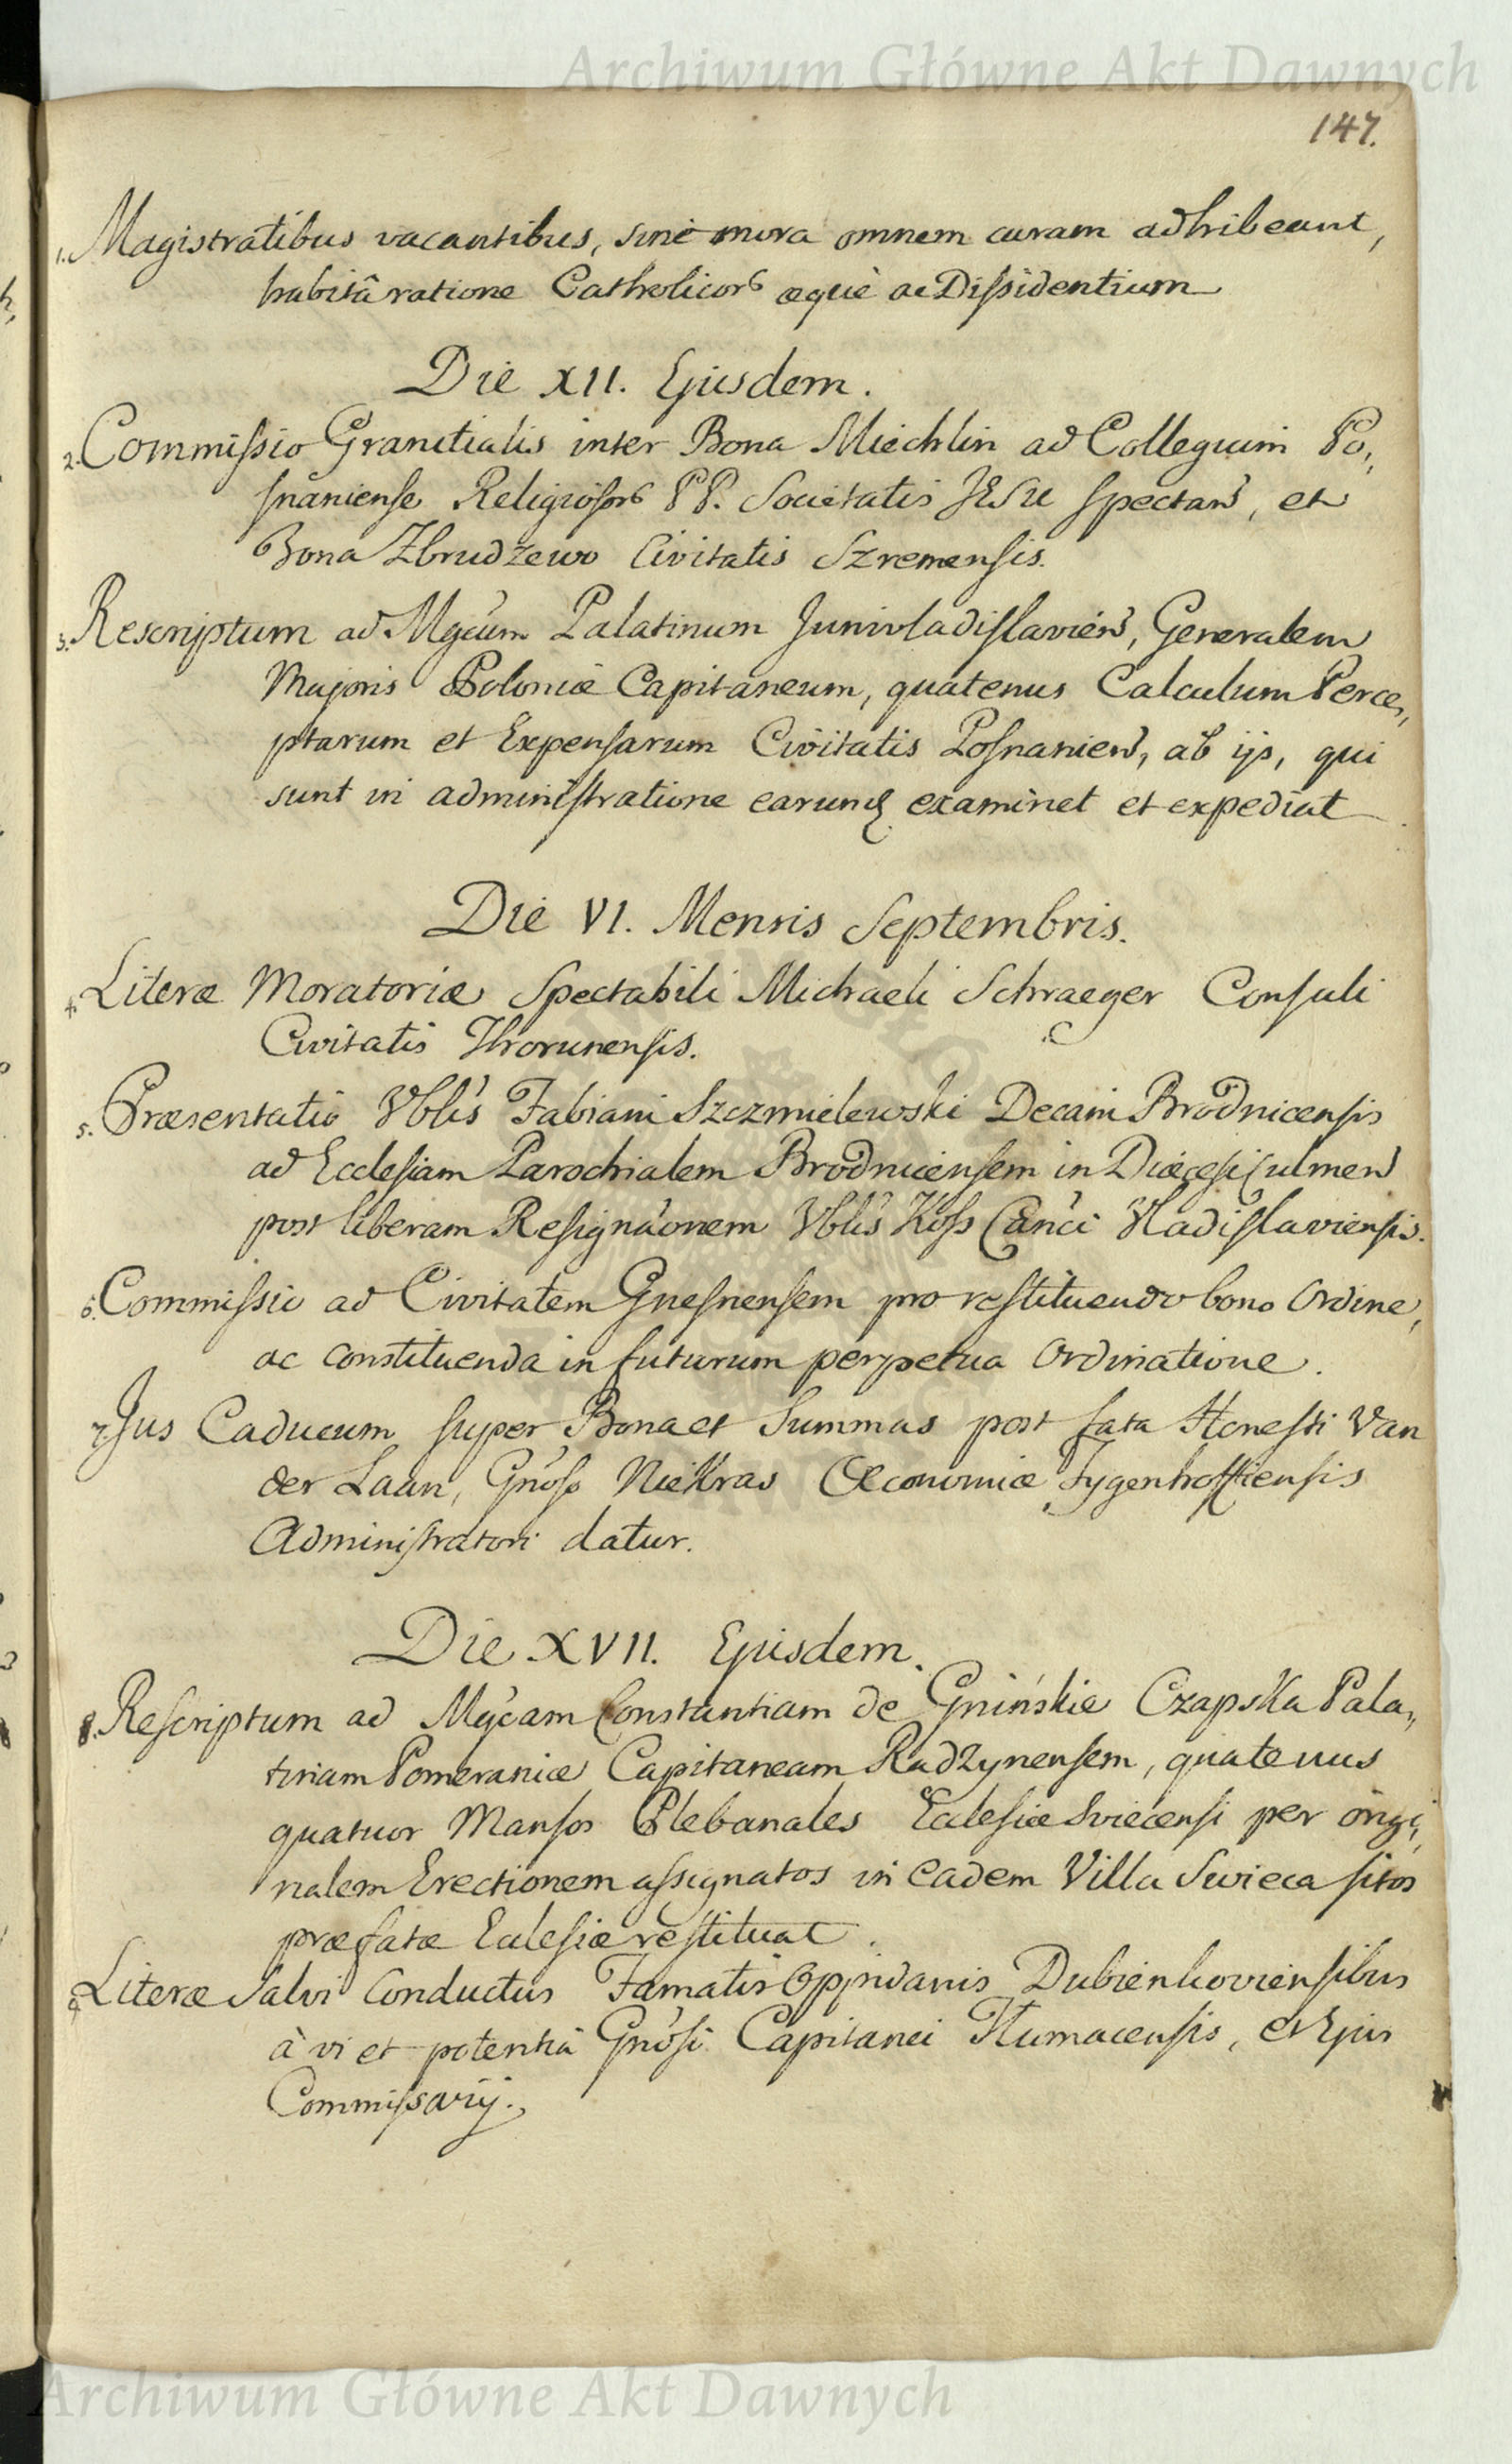 Archiwum Główne Akt Dawnych
147.
1. Magistratibus vacantibus, sine mora omnem curam adhibeant,
habitâ ratione Catholicor̃ æquè ac Dissidentium
Die XII. Ejusdem.
2. Commissio Granitialis inter Bona Miechlin ad Collegium Po,,
snaniense Religiosor̃ PP. Societatis JESU spectan̄, et
Bona Zbrudzewo Civitatis Szremensis.
3. Rescriptum ad Mgcum Palatinum Junivladislavien̄, Generalem
Majoris Poloniæ Capitaneum, quatenus Calculum Perce,,
ptarum et Expensarum Civitatis Posnanien̄, ab ijs, qui
sunt in administratione earund̄ examinet et expediat
Die VI. Mensis Septembris.
4. Literæ Moratoriæ Spectabili Michaeli Schraeger Consuli
Civitatis Thorunensis.
5. Præsentatio Vblis Fabiani Szczmielewski Decani Brodnicensis
ad Ecclesiam Parochialem Brodnicensem in Diæcesi Culmen̄
post liberam Resignãonem Vblis Koss Canci Vladislaviensis.
6. Commissio ad Civitatem Gnesnensem pro restituendo bono Ordine,
ac constituenda in futurum perpetua Ordinatione.
7. Jus Caducum super Bona et Summas post fata Honesti Van
der Laan, Gnoso Niekras Œconomiæ Tygenhoffiensis
Administratori datur.
Die XVII. Ejusdem.
8. Rescriptum ad Mgcam Constantiam de Gnińskie Czapska Pala,,
tinam Pomeraniæ Capitaneam Radzynensem, quatenus
quatuor Mansos Plebanales Ecclesiæ Sviecensi per origi,,
nalem Erectionem assignatos in eadem Villa Swieca sitos
præfatæ Eclesiæ restituat.
9. Literæ Salvi Conductus Famatis Oppidanis Dubienkoviensibus
à vi et potentiâ Gnosi Capitanei Tlumacensis, et Ejus
Commissarij.
Archiwum Główne Akt Dawnych